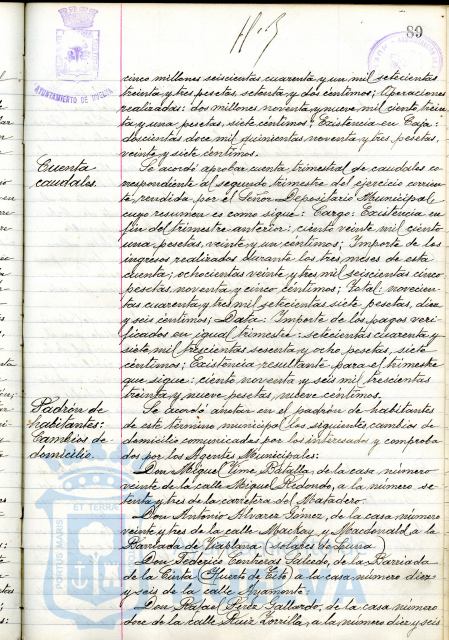 89
AYUNTAMIENTO DE HUELVA
cinco millones seiscientas cuarenta y un mil setecientas
treinta y tres pesetas, setenta y dos céntimos; Operaciones
realizadas: dos millones noventa y nueve mil ciento trein-
ta y una pesetas, siete céntimos; Existencia en Caja:
doscientas doce mil quinientas noventa y tres pesetas,
veinte y siete céntimos.
Cuenta
caudales.
Se acordó aprobar cuenta trimestral de caudales co-
rrespondiente al segundo trimestre del ejercicio corrien-
te, rendida por el Señor Depositario Municipal
cuyo resumen es como sigue: Cargo: Existencia en
fin del trimestre anterior: ciento veinte mil ciento
una pesetas, veinte y un céntimos; Importe de los
ingresos realizados durante los tres meses de esta
cuenta; ochocientas veinte y tres mil seiscientas cinco
pesetas, noventa y cinco céntimos; Total: novecien-
tas cuarenta y tres mil setecientas siete pesetas, diez
y seis céntimos; Data: Importe de los pagos veri-
ficados en igual trimestre: setecientas cuarenta y
siete mil trescientas sesenta y ocho pesetas, siete
céntimos; Existencia resultante para el trimestre
que sigue: ciento noventa y seis mil trescientas
treinta y nueve pesetas, nueve céntimos.
Padrón de
habitantes:
Cambios de
domicilio.
Se acordó anotar en el padrón de habitantes
de este término municipal los siguientes cambios de
domicilio comunicados por los interesados y comproba-
dos por los Agentes Municipales:
Don Miguel Batalla, de la casa número
veinte de la calle Miguel Redondo, a la número se-
tenta y tres de la carretera del Matadero.
Don Antonio Alvarez Gómez, de la casa número
veinte y tres de la calle Mackay y Macdonald a la
Barriada de (solares de
Don Federico Contreras Salcedo, de la Barriada
de la Cinta (Huerto de a la casa número diez
y seis de la calle Ayamonte.
Don Rafael Pérez Gallardo, de la casa número
doce de la calle Ruiz Zorrilla, a la número diez y seis
PORTUS MARIS ET TERRAE